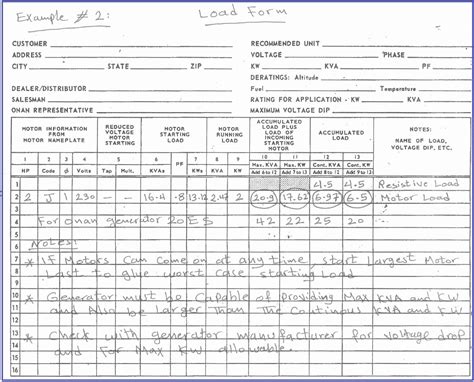 Example # 2:
Load Form
CUSTOMER
ADDRESS
CITY STATE ZIP
DEALER/DISTRIBUTOR
SALESMAN
ONAN REPRESENTATIVE
RECOMMENDED UNIT
VOLTAGE /PHASE
KW KVA PF
DERATINGS: Altitude
Fuel / Temperature
RATING FOR APPLICATION - KW KVA
MAXIMUM VOLTAGE DIP
MOTOR INFORMATION FROM MOTOR NAMEPLATE
REDUCED VOLTAGE MOTOR STARTING
MOTOR STARTING LOAD
PF
MOTOR RUNNING LOAD
ACCUMULATED LOAD PLUS LOAD OF INCOMING STARTING MOTOR
ACCUMULATED LOAD
NOTES:
NAME OF LOAD, VOLTAGE DIP, ETC.
1 2 3 4 5 6 7 8 9 10 11 12 13
HP Code ϕ Volts Tap Mult. KVAs KWs KVA KW Max. KVA Max. KW Cont. KVA Cont. KW
Add 6 to 12 Add 7 to 13 Add 8 to 12 Add 9 to 13
1 4.5 4.5 Resistive Load
2 2 J 1 230 — — 16.4 .8 13.12 2.47 2 20.9 17.62 6.97 6.5 Motor Load
4 For onan generator 20ES 42 22 25 20
6 Notes:
7 * IF Motors Can come on at any time, start Largest Motor
8 Last to give worst case starting Load
10 * Generator must be Capable of Providing Max KVA and KW
11 and Also be larger Than The Continuous KVA and KW
13 * Check with generator manufacturer for voltage drop
14 and For Max KW allowable.
15
16